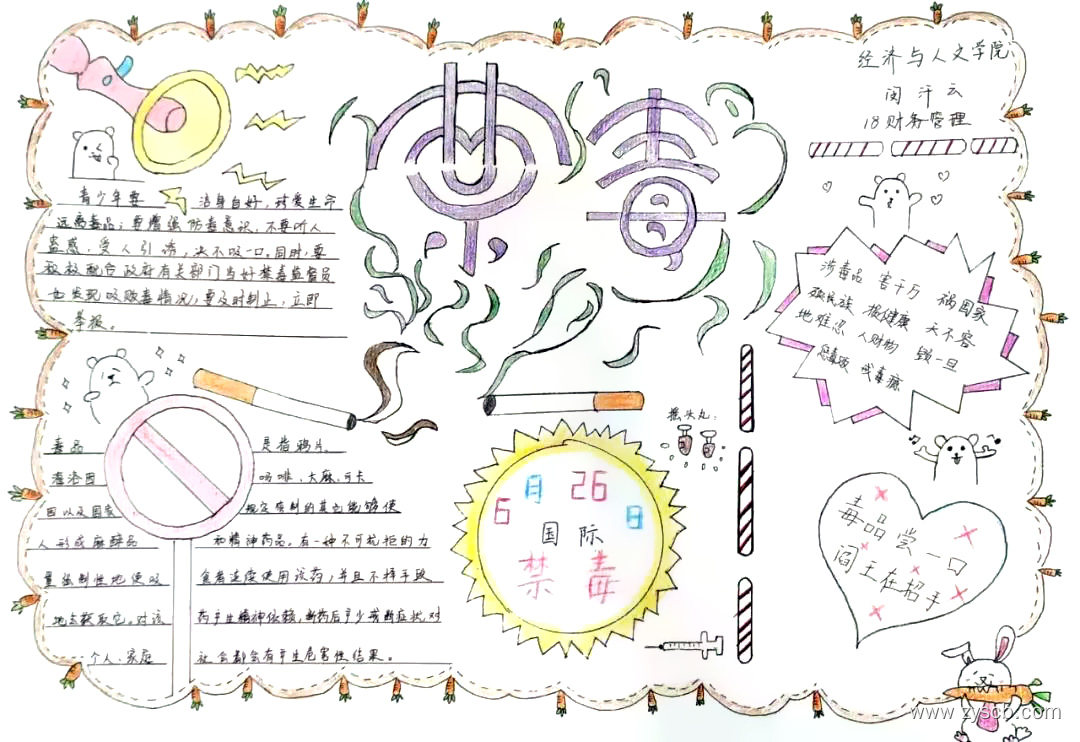 禁毒
经济与人文学院
闵汗云
18财务管理
青少年要 洁身自好，球爱生命
远离毒品；要增强防毒意识，不要听人
蛊惑，受人引诱，决不吸一口，同时，要
积极配合政府有关部门当好禁毒监督员
如发现吸贩毒情况，要及时制止，立即
举报。
毒品 是指鸦片。
海洛因 吗啡、大麻、可卡
因以及国家 规定管制的其它能够使
人形成麻醉品 和精神药品。有一种不可抗拒的力
量强制性地使吸 食者连度使用该药，并且不择手段
地去获取它。对该 药产生精神依赖，断药后产生戒断症状，对
个人、家庭 社会都会有产生危害性结果。
摇头丸：
6月26日
国际
禁毒
涉毒品 害千万 祸国家
殃民族 损健康 天不容
地难忍 人财物 毁一旦
戒毒瘾
毒品尝一口
阎王在招手
www.zyscb.com